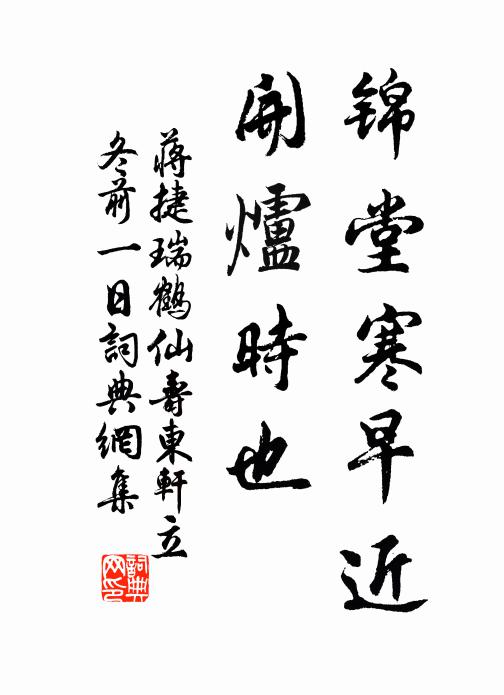 锦堂寒早近
開爐時也
蒋捷瑞鶴仙壽東軒立
冬前一日詞典網集
詞典网印